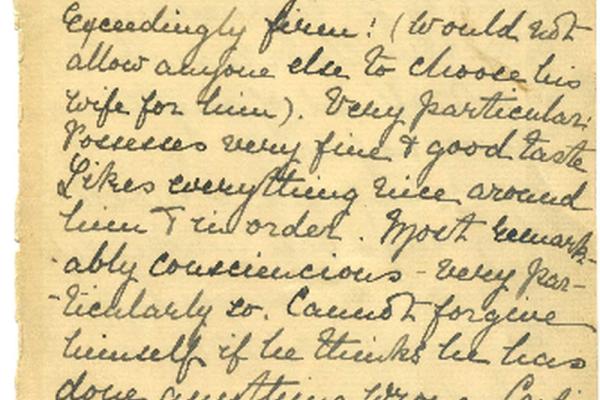 Exceedingly firm! (Would not
allow anyone else to choose his
wife for him). Very particular:
Possesses very fine & good taste
Likes everything nice around
him & in order. Most remark-
ably consciencious - very par-
-ticularly so. Cannot forgive
himself if he thinks he has
done anything wrong.